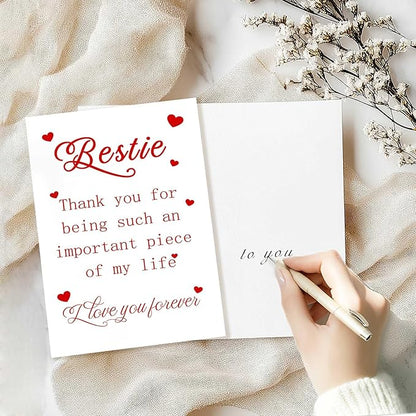 Bestie
Thank you for
being such an
important piece
of my life
I love you forever
to you